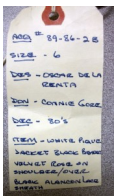 ACQ # 89-86-2B
SIZE - 6
DES - OSCAR DE LA
RENTA
DON - CONNIE GORE
DEC - 80's
ITEM - WHITE PIQUE
JACKET BLACK
VELVET ROSE ON
SHOULDER / OVER
BLACK ALANCON LACE
SHEATH